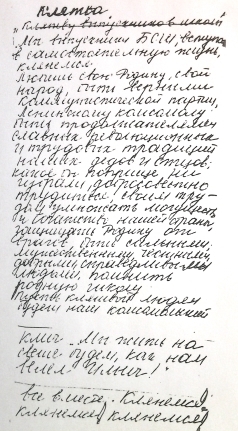 Клятва
"Клятву выпускников школы
Мы выпускники БСШ, вступая
в самостоятельную жизнь,
клянемся:
Любить свою Родину, свой
народ, быть верными
Коммунистической партии,
Ленинскому комсомолу.
Быть продолжателями
славных революционных
и трудовых традиций
наших дедов и отцов:
какое бы поприще, ни
избрали, добросовестно
трудиться, своим тру-
дом умножать могущество
и богатство нашей
защищать Родину от
врагов, быть сильными,
мужественными, честными,
добрыми, справедливыми
людьми, помнить
родную школу
людей
будет наш
клич - Мы жить на
свете будем, как нам
велел Ильич!
все вместе. Клянемся!
клянемся, клянемся!